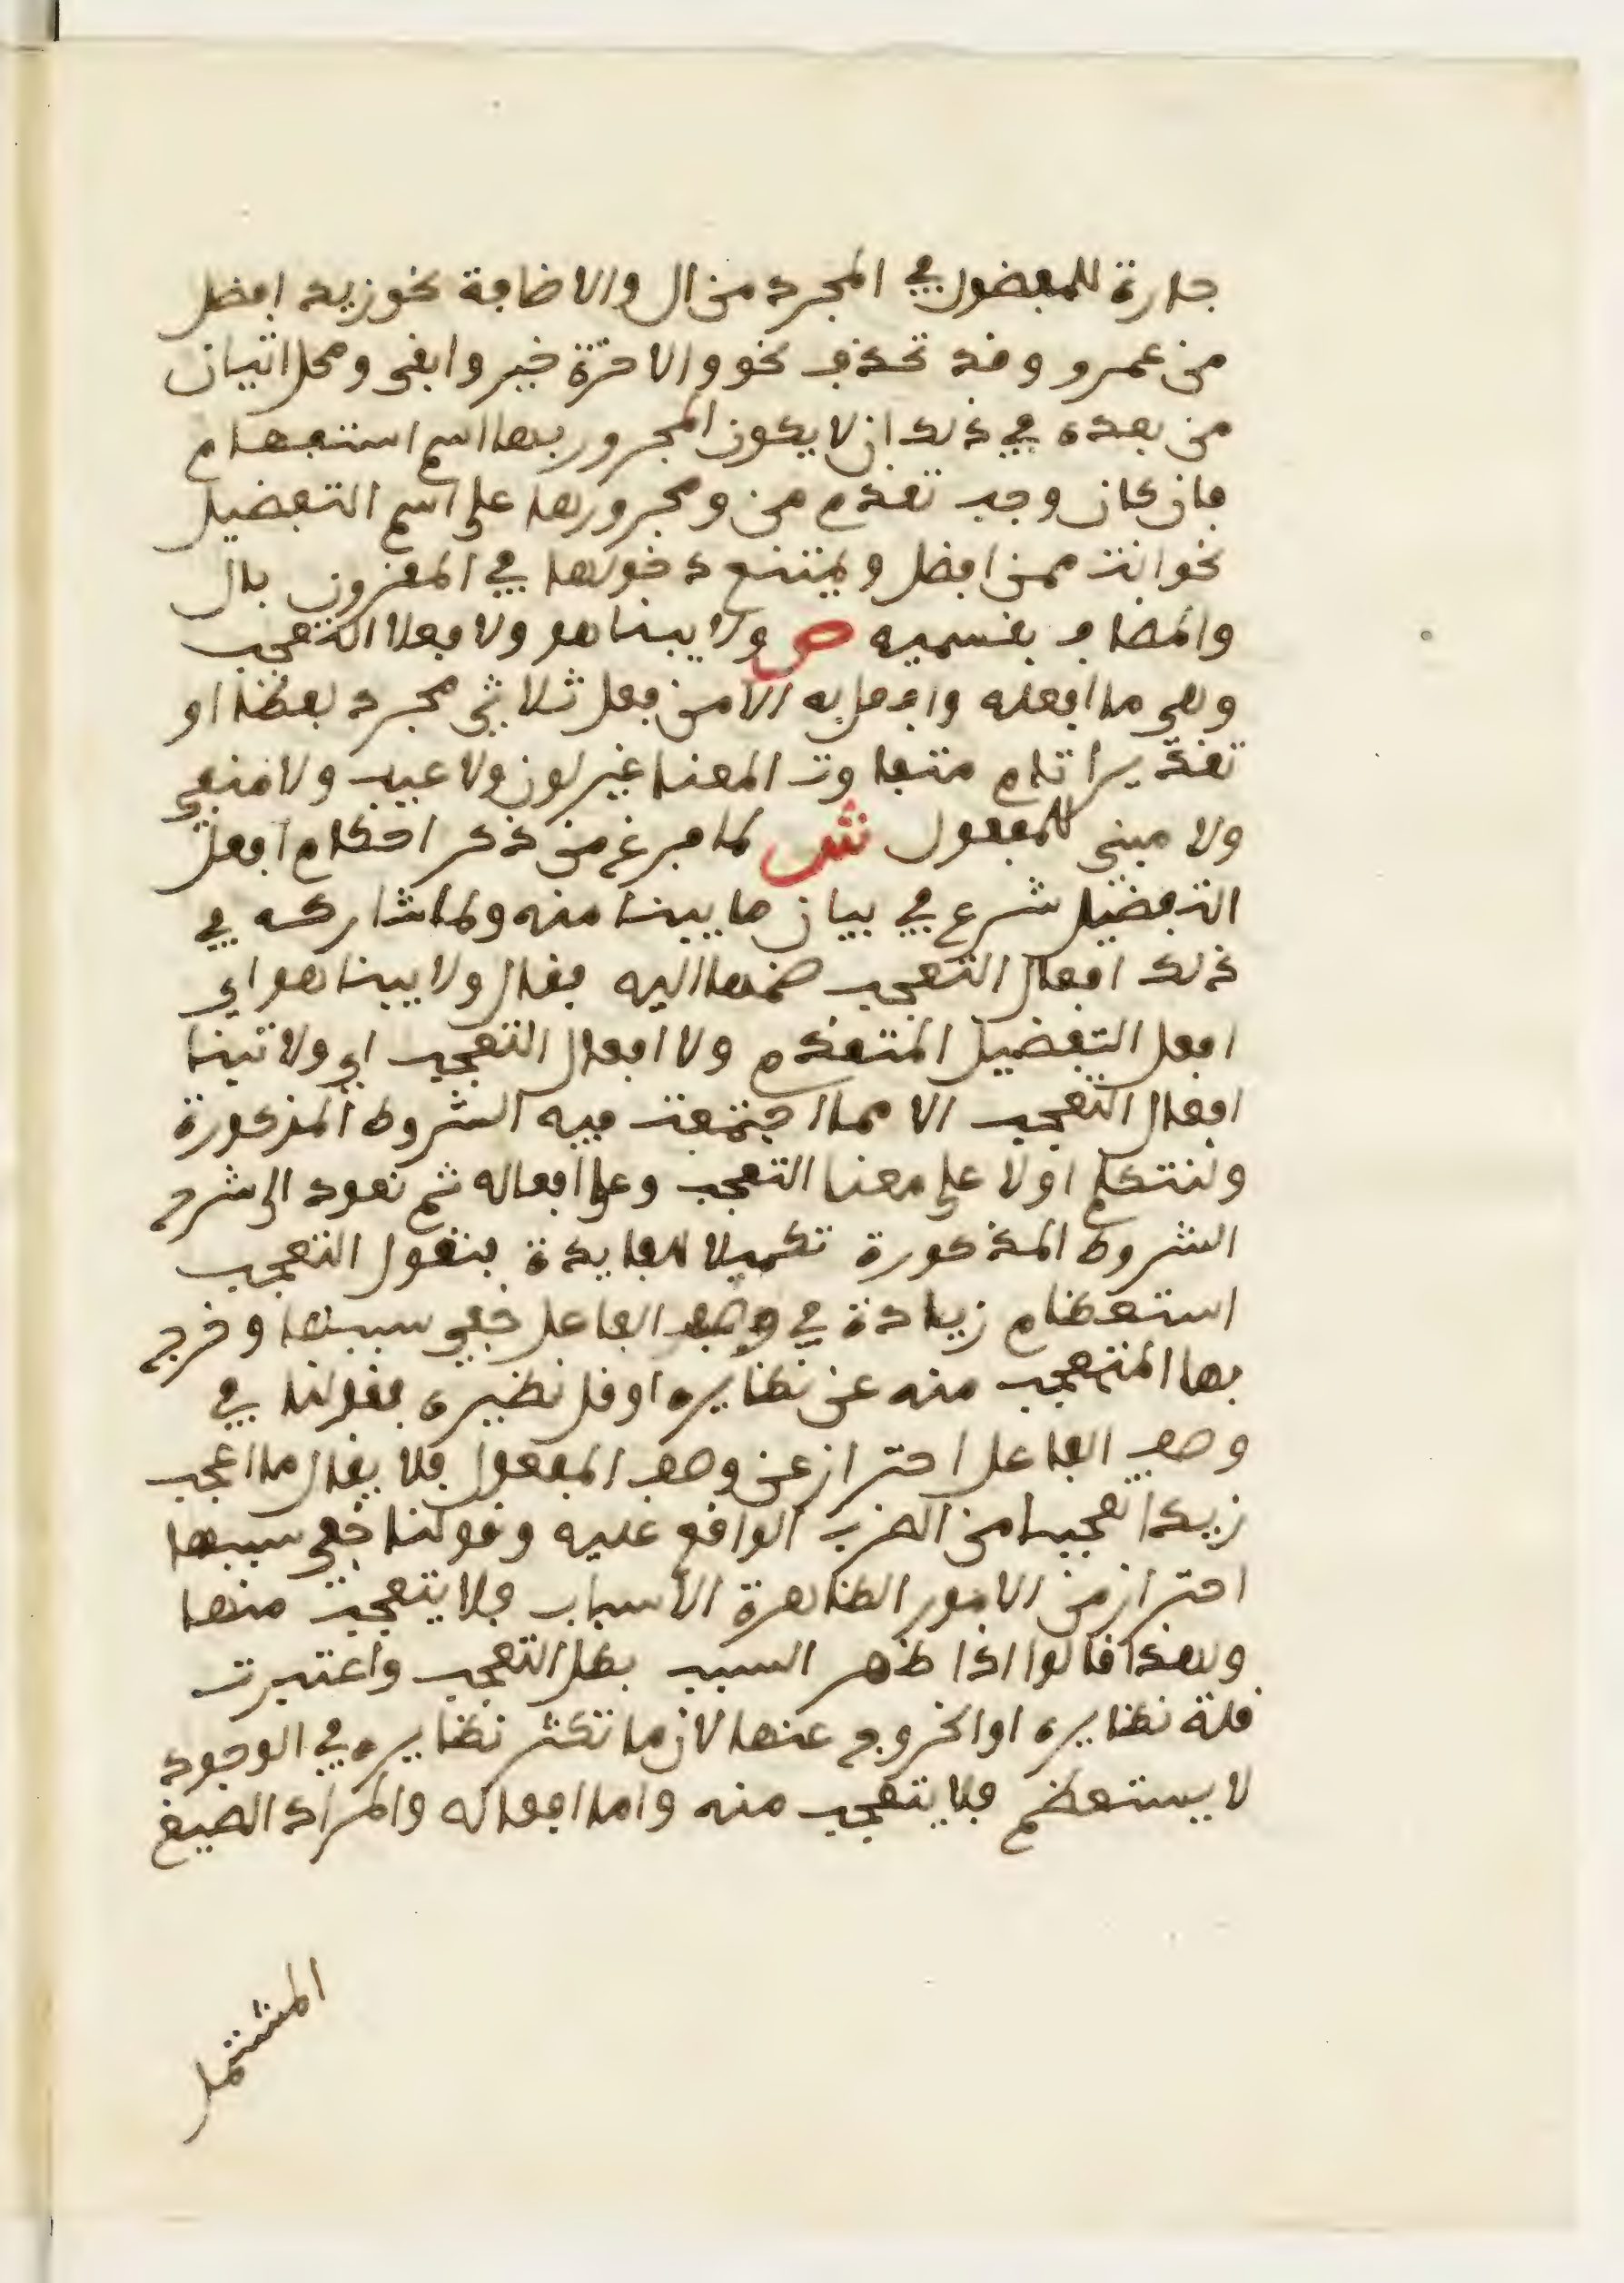 جارة للمفضول في المجرد من ال والاضافة نحو زيد افضل
من عمرو وقد تحذف نحو والاخرة خير وابقى ومحل اتيان
من بعده في ذلك ان لا يكون المجرور بها اسم استفهام
فان كان وجب تقدم من ومجرورها على اسم التفضيل
نحو انت ممن افضل ويمتنع دخولها في المقرون بال
والمضاف بقسميه ص ولا يبنا هو ولا فعلا التعجب
وهي ما افعله وافعل به الا من فعل ثلاثي مجرد لفظا او
تقديرا تام متفاوت المعنا غير لون ولا عيب ولا منفي
ولا مبني للمفعول ش لما فرغ من ذكر احكام افعل
التفضيل شرع في بيان ما يبنا منه ولما شاركه في
ذلك افعال التعجب ضمها اليه فقال ولا يبنا هو اي
افعل التفضيل المتقدم ولا افعال التعجب اي ولا تبنا
افعال التعجب الا مما اجتمعت فيه الشروط المذكورة
ونتكلم اولا على معنا التعجب وعلى افعاله ثم نعود الى شرح
الشروط المذكورة تكميلا للفايدة فنقول التعجب
استعظام زيادة في وصف الفاعل خفي سببها وخرج
بها المتعجب منه عن نظايره او قل نظيره فقولنا في
وصف الفاعل احتراز عن وصف المفعول فلا يقال ما اعجب
زيدا تعجبا من الضرب الواقع عليه وقولنا خفي سببها
احتراز من الامور الظاهرة الاسباب فلا يتعجب منها
ولهذا قالوا اذا ظهر السبب بطل التعجب واعتبرت
قلة نظايره او الخروج عنها لان ما تكثر نظايره في الوجود
لا يستعظم فلا يتعجب منه واما افعاله والمراد الصيغ
المشتمل